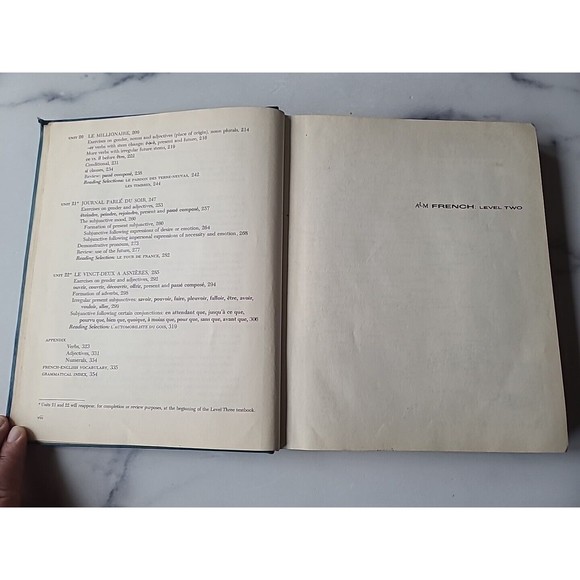 UNIT 20 LE MILLIONAIRE, 209
Exercises on gender, nouns and adjectives (place of origin), noun plurals, 214
verbs with stem change: present and future, 216
More verbs with irregular future stems, 218
before 221
Conditional, 231
si clauses, 234
Review: passé composé, 238
Reading Selections: LE PARDON DES TERRE-NEUVAS, 242
LES TIMBRES, 244
UNIT 21* JOURNAL PARLÉ DU SOIR, 247
Exercises on gender and adjectives, 253
éteindre, peindre, rejoindre, present and passé composé, 257
The subjunctive mood, 260
Formation of present subjunctive, 260
Subjunctive following expressions of desire or emotion, 264
Subjunctive following impersonal expressions of necessity and emotion, 268
Demonstrative pronouns, 273
Review: use of the future, 277
Reading Selection: LE TOUR DE FRANCE, 282
UNIT 22* LE VINGT-DEUX A ASNIÈRES, 285
Exercises on gender and adjectives, 292
ouvrir, couvrir, découvrir, offrir, present and passé composé, 294
Formation of adverbs, 298
Irregular present subjunctives: savoir, pouvoir, faire, pleuvoir, falloir, être, avoir,
vouloir, aller, 299
Subjunctive following certain conjunctions: en attendant que, jusqu'à ce que,
pourvu que, bien que, quoique, à moins que, pour que, sans que, avant que, 306
Reading Selection: L'AUTOMOBILISTE DU GOIS, 319
APPENDIX
Verbs, 323
Adjectives, 331
Numerals, 334
FRENCH-ENGLISH VOCABULARY, 335
GRAMMATICAL INDEX, 354
* Units 21 and 22 will reappear, for completion or review purposes, at the beginning of the Level Three textbook.
viii
A-LM FRENCH LEVEL TWO